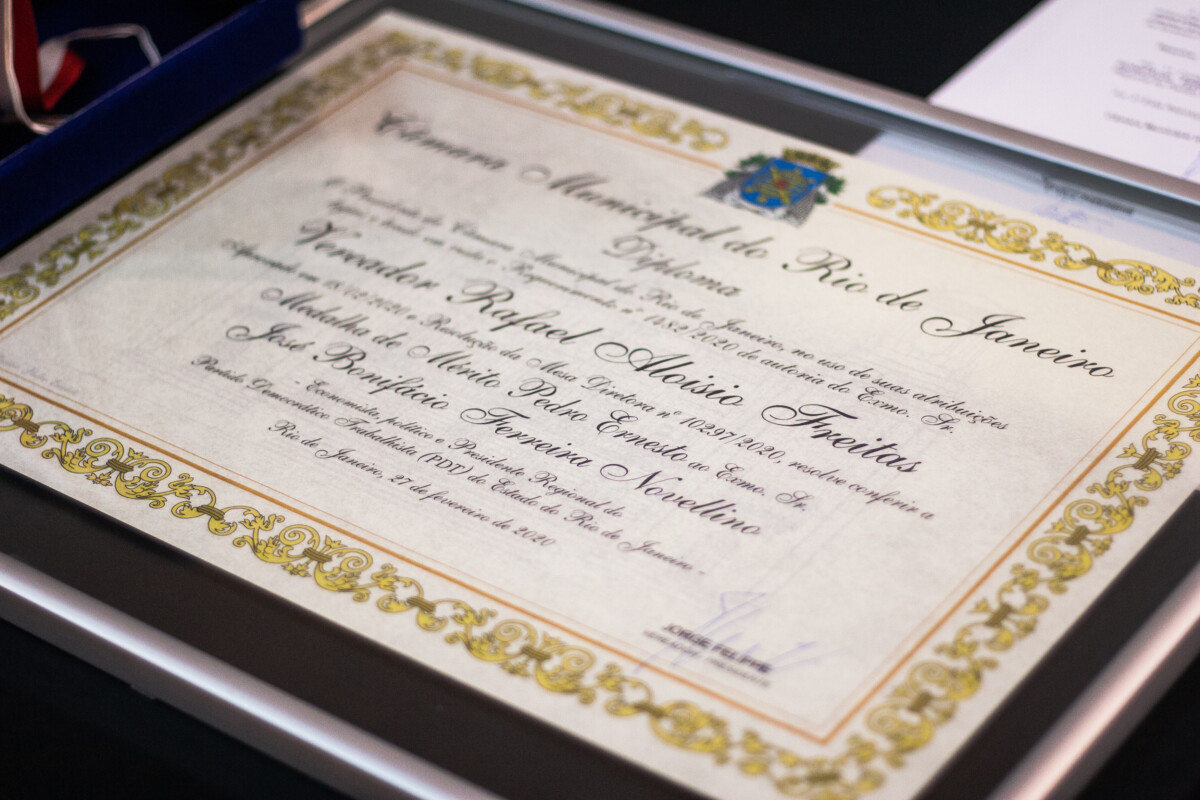 Câmara Municipal do Rio de Janeiro
Diploma
O Presidente da Câmara Municipal do Rio de Janeiro, no uso de suas atribuições
legais e tendo em vista o Requerimento nº 1482/2020 de autoria do Exmo. Sr.
Vereador Rafael Aloisio Freitas
Aprovado em 18/12/2020 e Resolução da Mesa Diretora nº 10297/2020, resolve conferir a
Medalha de Mérito Pedro Ernesto ao Exmo. Sr.
José Bonifácio Ferreira Novellino
- Economista, político e Presidente Regional do
Partido Democrático Trabalhista (PDT) do Estado do Rio de Janeiro -
Rio de Janeiro, 27 de fevereiro de 2020
JORGE FELIPPE
PRESIDENTE